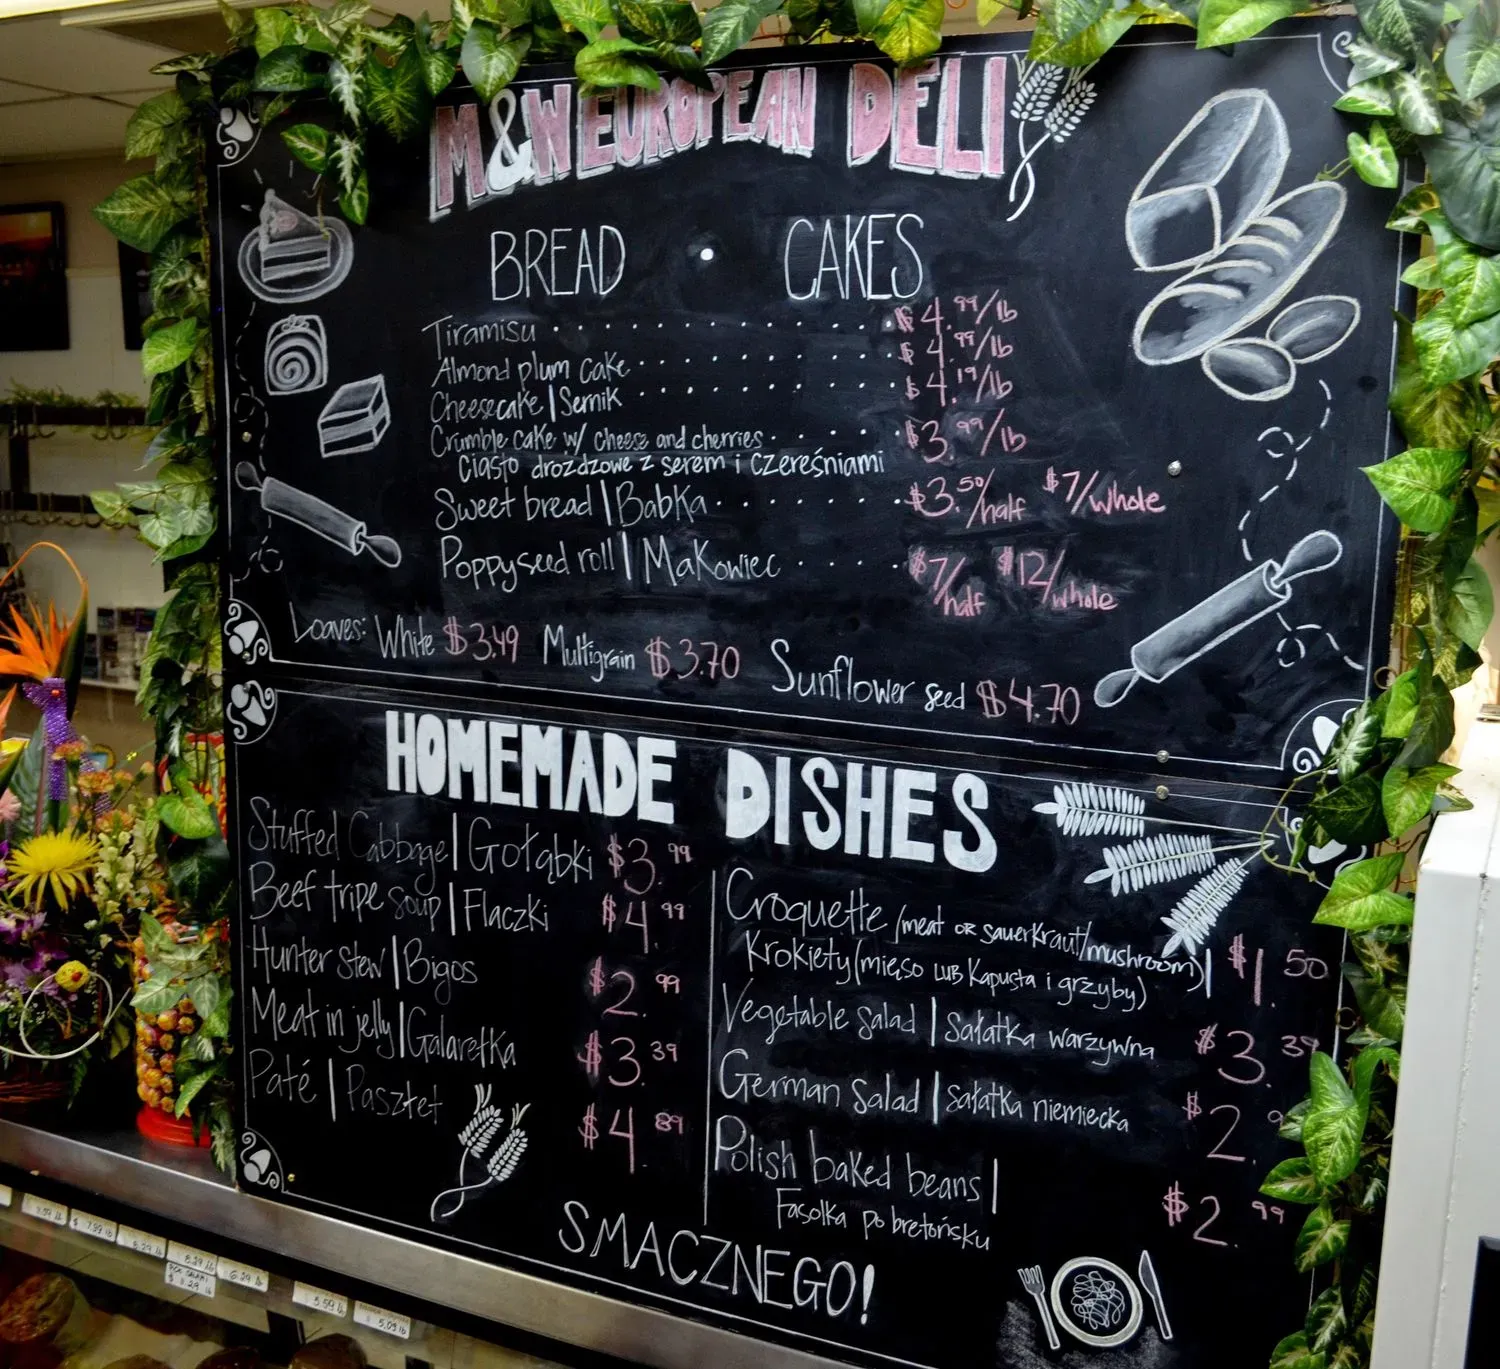 M&W EUROPEAN DELI
BREAD • CAKES
Tiramisu $4.99/lb
Almond plum cake $4.99/lb
Cheesecake | Sernik $4.19/lb
Crumble cake w/ cheese and cherries $3.99/lb
Ciasto drozdzowe z serem i czereśniami
Sweet bread | Babka $3.50/half $7/whole
Poppyseed roll | Makowiec $7/half $12/whole
Loaves: White $3.49 Multigrain $3.70 Sunflower seed $4.70
HOMEMADE DISHES
Stuffed Cabbage | Gołąbki $3.99
Beef tripe soup | Flaczki $4.99
Hunter stew | Bigos $2.99
Meat in jelly | Galaretka $3.39
Paté | Pasztet $4.89
Croquette /meat or sauerkraut/mushroom) | $1.50
Krokiety (mięso lub kapusta i grzyby)
Vegetable salad | sałatka warzywna $3.39
German salad | sałatka niemiecka $2.9
Polish baked beans |
Fasolka po bretońsku $2.99
SMACZNEGO!
7.99 lb
8.29 lb
8.29 lb
6.29 lb
5.59 lb
5.09 lb